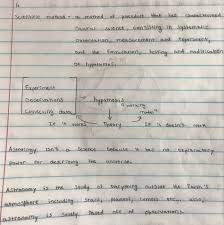 Scientific method - a method of procedure that has characterized
natural science, consisting in systematic
observation, measurement and experiment,
and the formulation, testing and modification
of hypotheses.
Experiment
Observations
hypothesis
It works
Theory
It doesn't work
Astrology isn't a science because it has no explanatory
power for describing the universe.
Astronomy is the study of everything outside the Earth's
atmosphere including stars, planets, comets etc..., also,
astronomy is solely based off of observations.